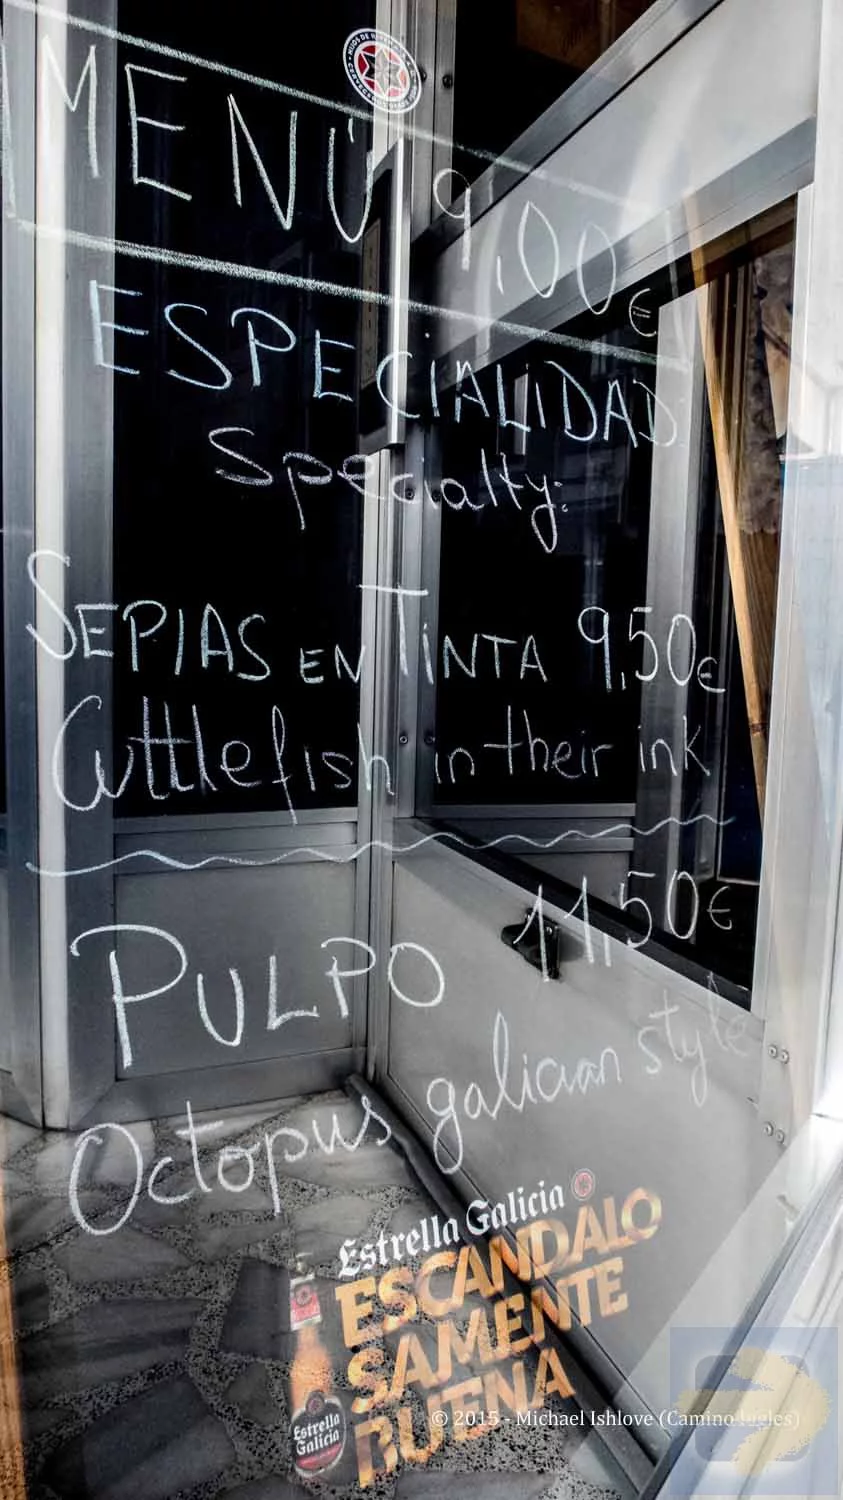 MENÚ 9,00€
ESPECIALIDAD:
Specialty:
SEPIAS EN TINTA 9,50€
Cuttlefish in their ink
PULPO 11,50€
Octopus galician style
Estrella Galicia
ESCANDALO
SAMENTE
BUENA
Estrella
Galicia
© 2015 - Michael Ishlove (Camino Ingles)